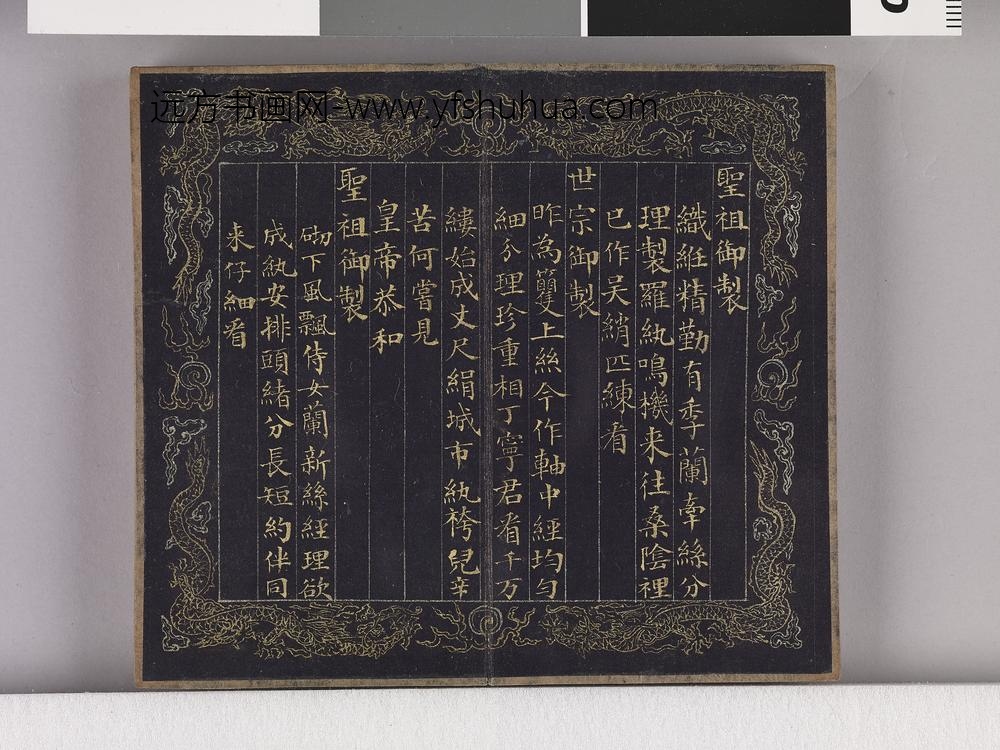 远方书画网-www.yfshuhua.com
聖祖御製
織絍精勤有季蘭牽絲分
理製羅紈鳴機来往桑陰裡
已作吴綃匹練看
世宗御製
昨為籰上絲今作軸中經均勻
細分理珍重相丁寧君看千万
縷始成丈尺絹城市紈袴兒辛
苦何嘗見
皇帝恭和
聖祖御製
砌下風飄侍女蘭新絲經理欲
成紈安排頭緒分長短約伴同
来仔細看